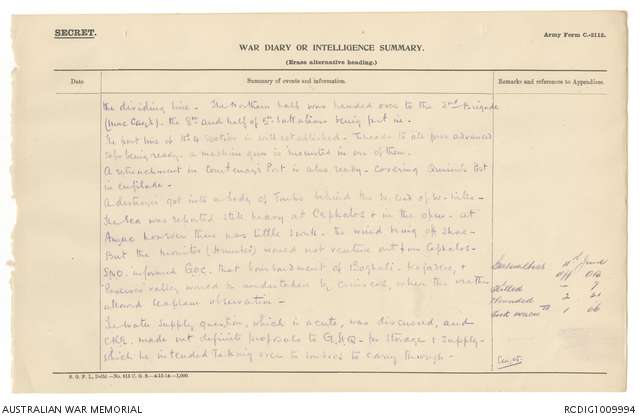 SECRET.
Army Form C.-2112.
WAR DIARY OR INTELLIGENCE SUMMARY.
(Erase alternative heading.)
Date
Summary of events and information.
Remarks and references to Appendices.
the dividing line - The Northern half was handed over to the 2nd Brigade
the 8th and half of 5th battalions being put in -
The post line of No 4 Section is well established - T heads to all four advanced
saps being ready - a machine gun is mounted in one of them.
A retrenchment in Courtenay's Post is also ready - covering Quinn's Post
in enfilade -
A destroyer got into a body of Turks behind the
The Sea was reported still heavy at Cephalos & in the open - at
Anzac however there was little swell - the wind being off shore -
But the monitor (Humber) would not venture out from Cephalos -
SNO. informed GOC. that bombardment of Boghali - Kojadere, &
valley would be undertaken by cruisers, when the weather
allowed seaplane observation -
The water supply question, which is acute, was discussed, and
CRE. made out definite proposals to G.H.Q. for storage & supply -
which he intended taking over to Imbros to carry through -
Casualties June
Off OR
Killed - 7
Wounded 2 21
Sick 1 66
S. G. P. I., Delhi.—No. 815 C. G. S.—4-12-14—1,000.
AUSTRALIAN WAR MEMORIAL
RCDIG1009994